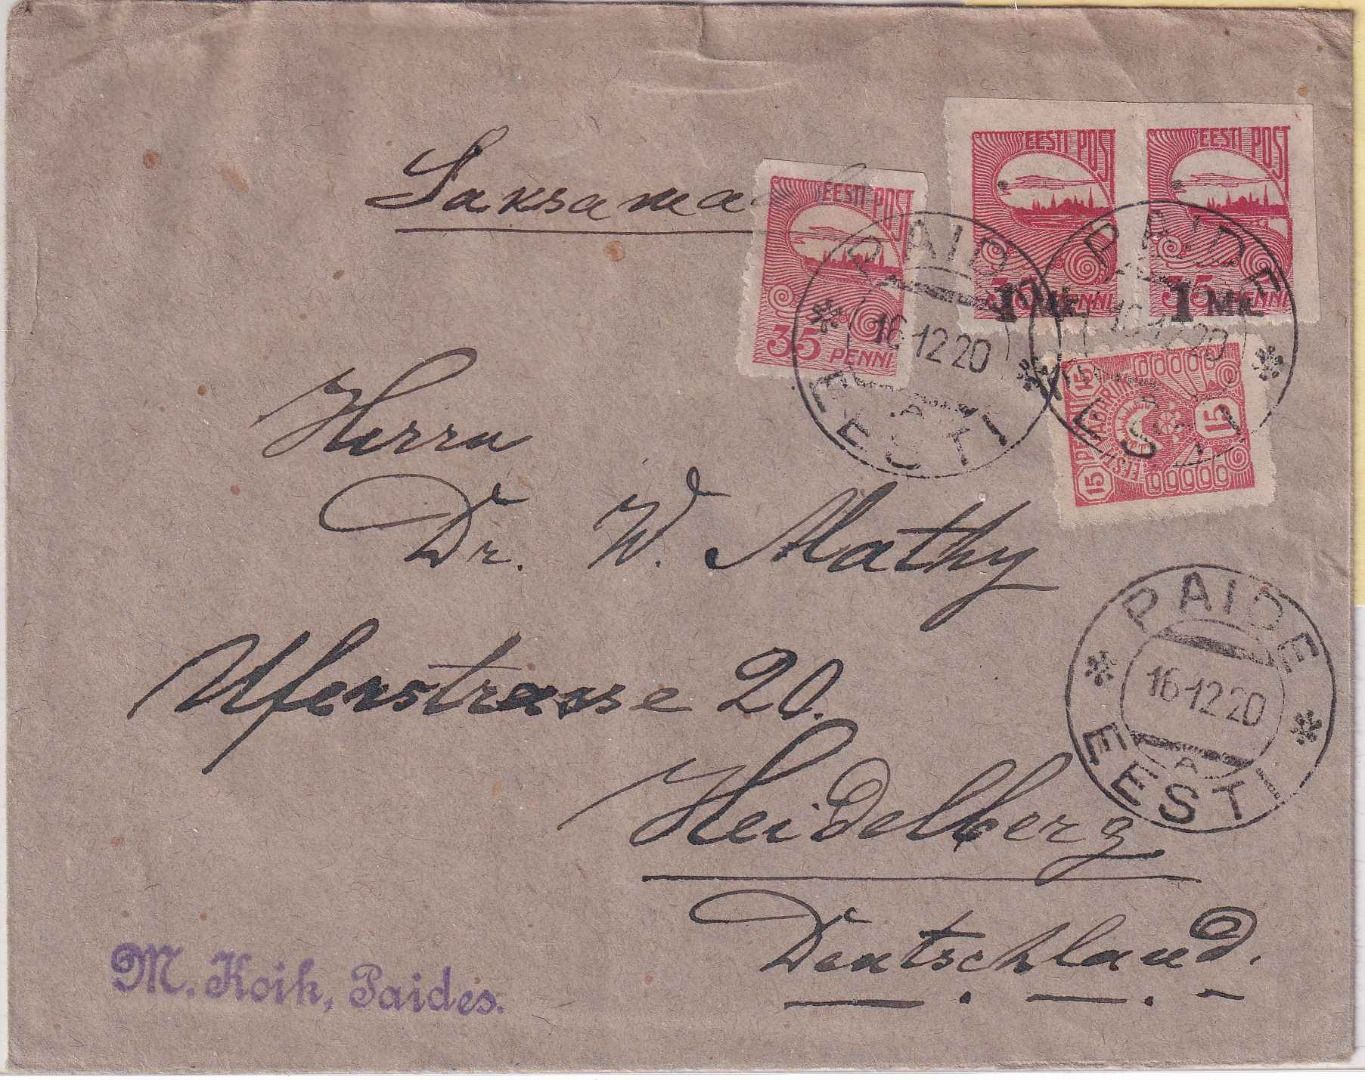 EESTI POST
EESTI POST
35 PENNI
1 Mk.
1 Mk.
EESTI POST
35 PENNI
PAIDE
16.12.20
A
EESTI
PAIDE
16.12.20
EESTI
15
15
15
Herrn
Dr. W. Mathy
Uferstrasse 20.
Heidelberg
Deutschland.
PAIDE
16.12.20
A
EESTI
M. Koik, Paides.